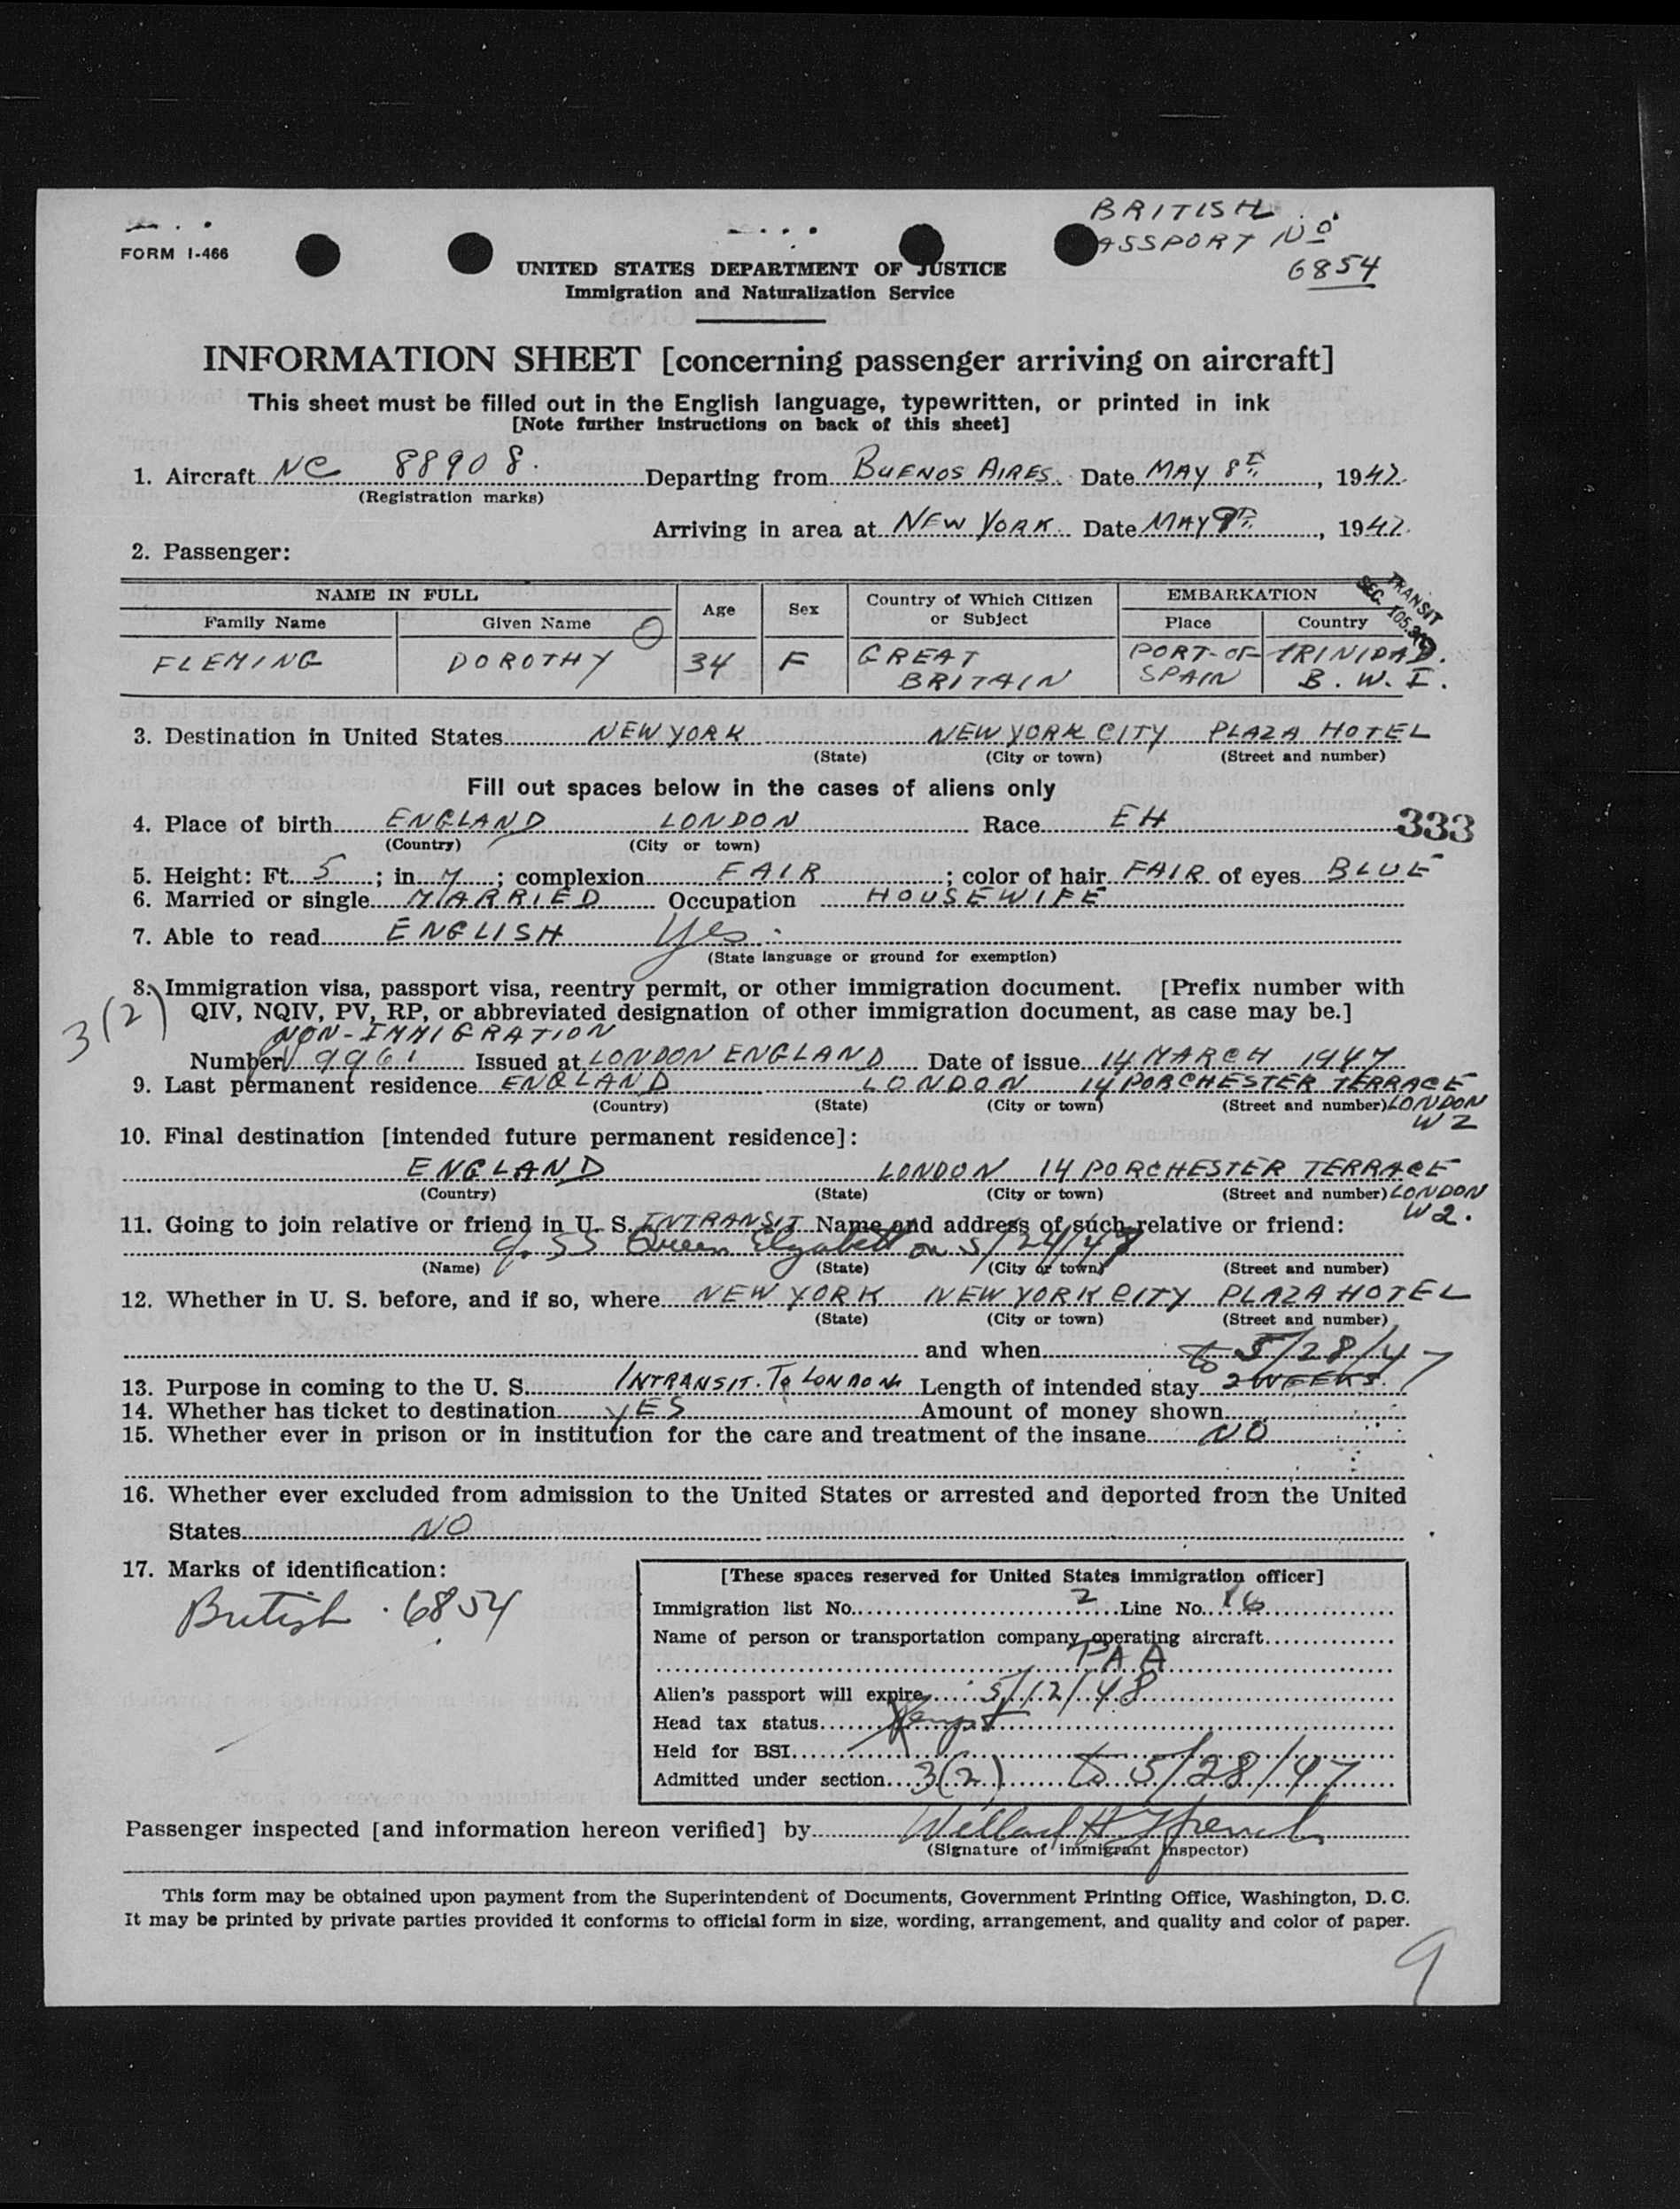 BRITISH
PASSPORT No
6854
FORM I-466
UNITED STATES DEPARTMENT OF JUSTICE
Immigration and Naturalization Service
INFORMATION SHEET [concerning passenger arriving on aircraft]
This sheet must be filled out in the English language, typewritten, or printed in ink
[Note further instructions on back of this sheet]
1. Aircraft NC 88908. Departing from BUENOS AIRES. Date MAY 8th, 1947.
(Registration marks)
Arriving in area at NEW YORK. Date MAY 9TH, 1947.
2. Passenger:
TRANSIT
NAME IN FULL Age Sex Country of Which Citizen or Subject EMBARKATION
Family Name Given Name Place Country
FLEMING DOROTHY 34 F GREAT BRITAIN PORT-OF-SPAIN TRINIDAD. B.W.I.
3. Destination in United States NEW YORK NEW YORK CITY PLAZA HOTEL
(State) (City or town) (Street and number)
Fill out spaces below in the cases of aliens only
4. Place of birth ENGLAND LONDON Race EH 333
(Country) (City or town)
5. Height: Ft. 5; in 7; complexion FAIR; color of hair FAIR of eyes BLUE
6. Married or single MARRIED Occupation HOUSEWIFE
7. Able to read ENGLISH Yes.
(State language or ground for exemption)
8. Immigration visa, passport visa, reentry permit, or other immigration document. [Prefix number with
3(2) QIV, NQIV, PV, RP, or abbreviated designation of other immigration document, as case may be.]
NON-IMMIGRATION
Number 9961 Issued at LONDON ENGLAND Date of issue 14 MARCH 1947
9. Last permanent residence ENGLAND LONDON 14 PORCHESTER TERRACE
(Country) (State) (City or town) (Street and number) LONDON
W2
10. Final destination [intended future permanent residence]:
ENGLAND LONDON 14 PORCHESTER TERRACE
(Country) (State) (City or town) (Street and number) LONDON
W2.
11. Going to join relative or friend in U. S. INTRANSIT Name and address of such relative or friend:
SS Queen Elizabeth on 5/24/47
(Name) (State) (City or town) (Street and number)
12. Whether in U. S. before, and if so, where NEW YORK NEW YORK CITY PLAZA HOTEL
(State) (City or town) (Street and number)
and when to 5/28/47
13. Purpose in coming to the U. S. INTRANSIT. To LONDON Length of intended stay 2 WEEKS.
14. Whether has ticket to destination YES Amount of money shown
15. Whether ever in prison or in institution for the care and treatment of the insane NO
16. Whether ever excluded from admission to the United States or arrested and deported from the United
States NO
17. Marks of identification:
British 6854
[These spaces reserved for United States immigration officer]
Immigration list No. 2 Line No. 16
Name of person or transportation company operating aircraft
PAA
Alien's passport will expire 5/12/48
Head tax status
Held for BSI
Admitted under section 3(2) to 5/28/47
Passenger inspected [and information hereon verified] by Willard H French
(Signature of immigrant inspector)
This form may be obtained upon payment from the Superintendent of Documents, Government Printing Office, Washington, D. C.
It may be printed by private parties provided it conforms to official form in size, wording, arrangement, and quality and color of paper.
9